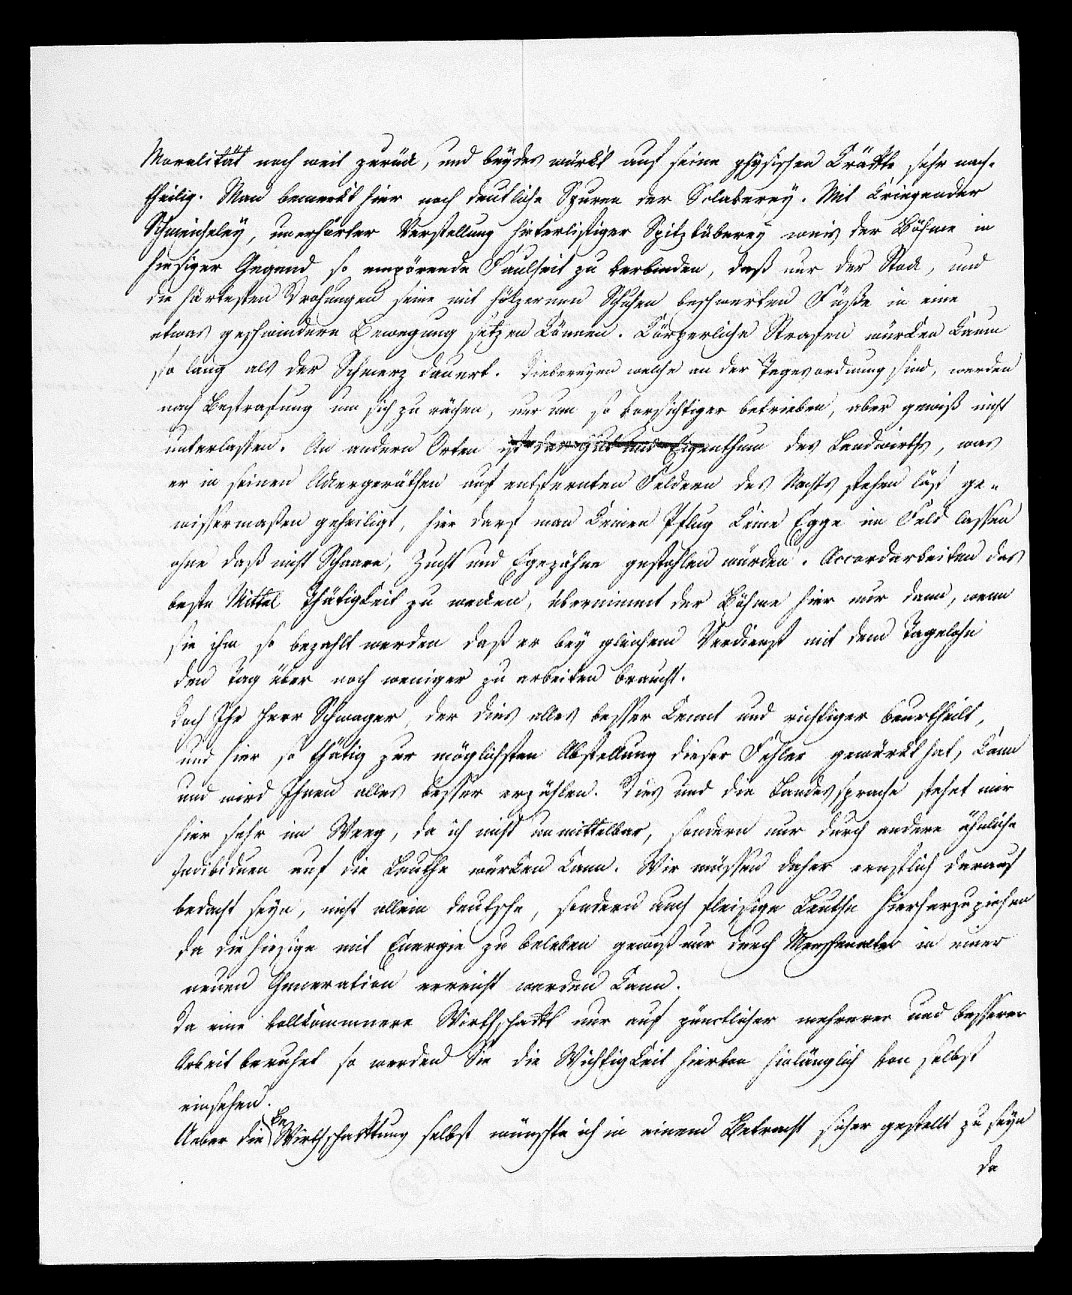 Moralität noch weit zurück, und beydes würkt auf seine physischen Kräfte sehr nach-
theilig. Man bemerkt hier noch deutliche Spuren der Sclaverey. Mit kriegender
Schmeicheley, unerhörter Verstellung hinterlistiger Spitzbüberey weis der Böhme in
hiesiger Gegend so empörende Faulheit zu verbinden, daß nur der Stock, und
die härtesten Drohungen seine mit hölzernen Schuhen beschwerten Füße in eine
etwas geschwindere Bewegung setzen können. Körperliche Strafen würken kaum
so lang als der Schmerz dauert. Diebereyen welche an der Tagesordnung sind, werden
nach Bestrafung um sich zu rächen, nur um so vorsichtiger betrieben, aber gewiß nicht
unterlassen. An andern Orten ist das Gut und Eigenthum des Landwirths, was
er in seinen Ackergeräthen auf entfernten Feldern des Nachts stehen läst ge-
wissermaßen geheiligt, hier darf man keinen Pflug keine Egge im Feld lassen
ohne daß nicht Schaare, und Egezähne gestohlen würden. Accordarbeiten das
beste Mittel Thätigkeit zu wecken, übernimmt der Böhme hier nur dann, wenn
sie ihm so bezahlt werden daß er bey gleichem Verdienst mit dem Tagelohn
den Tag über noch weniger zu arbeiten braucht.
Doch Ihr Herr Schwager, der dies alles besser kennt und richtiger beurtheilt,
und hier so thätig zur möglichsten Abstellung dieser Fehler gewürkt hat, kann
und wird Ihnen alles besser erzählen. Dies und die Landessprache stehet mir
hier sehr im Weeg, da ich nicht unmittelbar, sondern nur durch andere ähnliche
Individuen auf die Leuthe würken kann. Wir müssen daher ernstlich darauf
bedacht seyn, nicht allein deutsche, sondern auch fleisige Leuthe hierherzuziehen
da die hiesige mit Energie zu beleben gewiß nur durch Menschenalter in einer
neuen Generation erreicht werden kann.
Da eine vollkommnere Wirthschaft nur auf pünctlicher mehrerer und besserer
Arbeit beruhet so werden Sie die Wichtigkeit hievon hinlänglich von selbst
einsehen.
Ueber die Bewirthschaftung selbst wünschte ich in einem Betracht sicher gestellt zu seyn
da